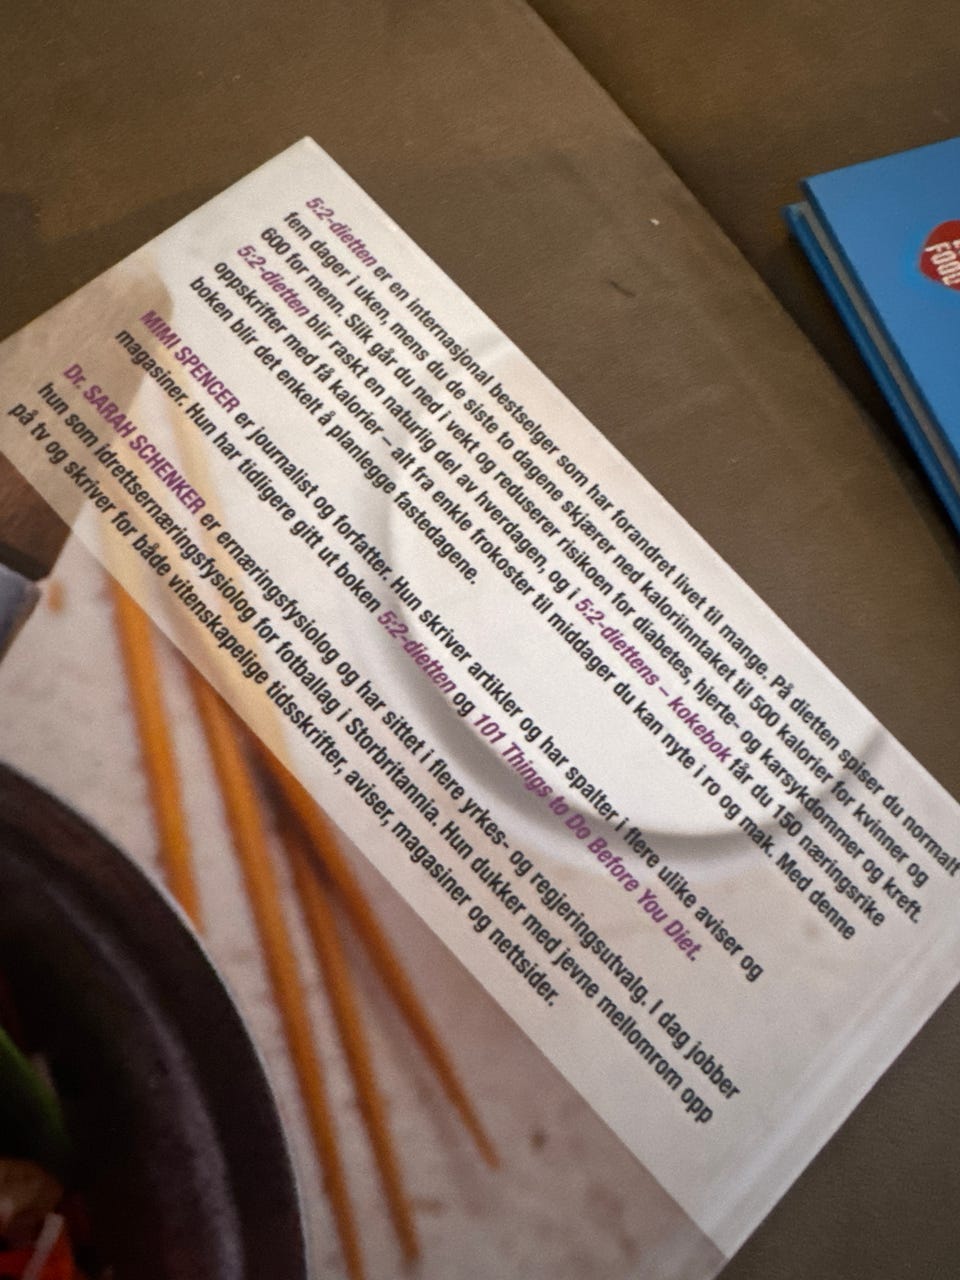 5:2-dietten er en internasjonal bestselger som har forandret livet til mange. På dietten spiser du normalt
fem dager i uken, mens du de siste to dagene skjærer ned kaloriinntaket til 500 kalorier for kvinner og
600 for menn. Slik går du ned i vekt og reduserer risikoen for diabetes, hjerte- og karsykdommer og kreft.
5:2-dietten blir raskt en naturlig del av hverdagen, og i 5:2-diettens – kokebok får du 150 næringsrike
oppskrifter med få kalorier – alt fra enkle frokoster til middager du kan nyte i ro og mak. Med denne
boken blir det enkelt å planlegge fastedagene.
MIMI SPENCER er journalist og forfatter. Hun skriver artikler og har spalter i flere ulike aviser og
magasiner. Hun har tidligere gitt ut boken 5:2-dietten og 101 Things to Do Before You Diet.
Dr. SARAH SCHENKER er ernæringsfysiolog og har sittet i flere yrkes- og regjeringsutvalg. I dag jobber
hun som idrettsernæringsfysiolog for fotballag i Storbritannia. Hun dukker med jevne mellomrom opp
på tv og skriver for både vitenskapelige tidsskrifter, aviser, magasiner og nettsider.
FOOD